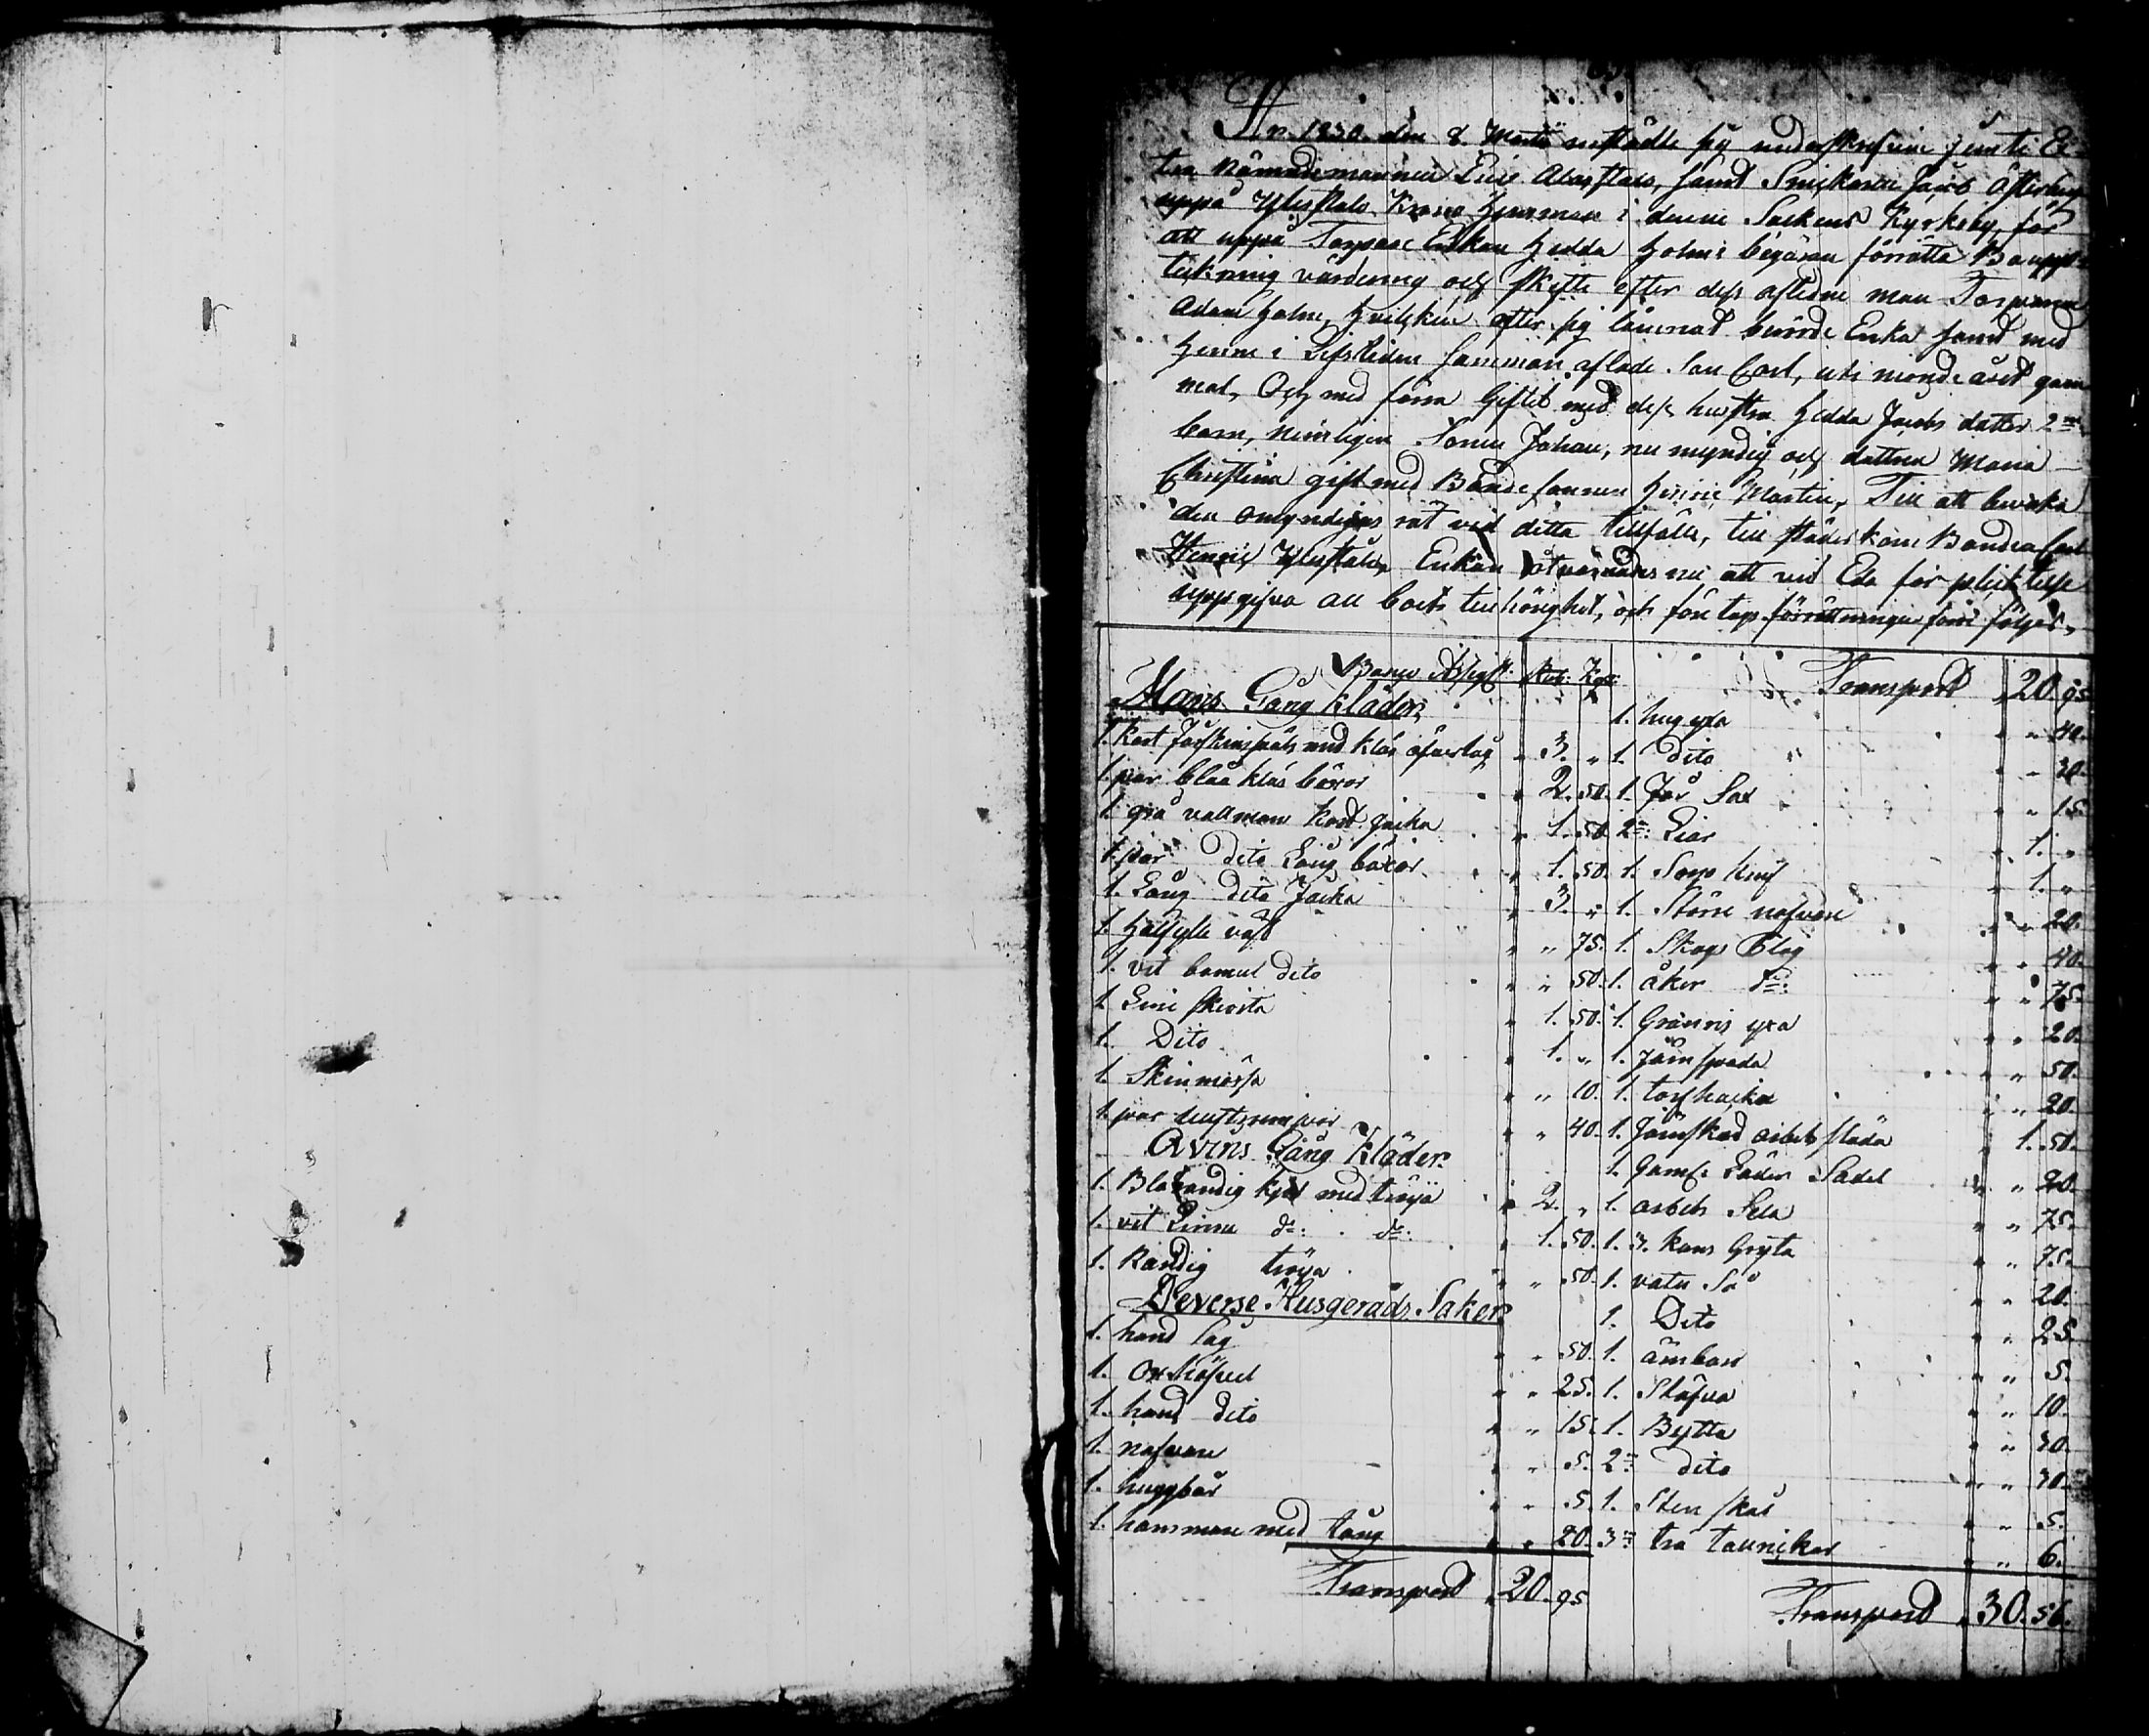 An. 1830. den 8. Martii instälte sig underskrefne jemte Ex-
tra Nämndemannen Eric Alarstalo, samt Snickaren Jacob Österberg
uppå Ylistalo Krono Hemman i denne Sockens Kyrkoby, för
att uppå Torpare Enkan Hedda Holms begäran förrätta Bouppt-
tekning värdering och skifte efter dess aflidne man Torparen
Adam Holm, hvilcken efter sig lämnat berörde Enka samt med
henne i Lifstiden sammanaflade Son Carl, uti nionde året gam
mal, Och med förra Giftet med dess hustru Hedda Jacobs datter 2ne
barn, nemligen Sonen Johan, nu myndig och dattren Maria
Christina gift med Bondesonen Henric Martin, Till att bevaka
den omyndigas rät vid detta tillfälle, till städes kom Bonden Carl
Henric Ylistalo, Enkan åtvarnades nu att vid Eds för pliktelse
uppgifva all boets tillhörighet, och före togs förrättningen som följer,
Banco Assigt. Rub: Kop:
Mans Gång kläder
1. kort fårskinspäls med klädes öfverlag " 3. "
1. par blåa klädes böxor " 2. 50.
1. grå vallmans kort jacka " 1. 50.
1. par dito Lång böxor " 1. 50.
1. Lång dito Jacka " 3. "
1. halfylle väst " " 75.
1. vit bomul dito " " 50.
1. Linne skiorta " 1. 50.
1. Dito " 1. "
1. Skinmössa " " 10.
1. par " " 40.
Qvins Gång Kläder
1. Blårandig kjol med tröja " 2. "
1. vit Linne do: do: " 1. 50.
1. Randig tröja " " 50.
Deverse Husgeråds Saker
1. hand såg " " 50.
1. Oxhöfvel " " 25.
1. hand dito " " 15.
1. nafvare " " 5.
1. huggbår " " 5.
1. hammare med tång " " 20.
Transport " 20. 95
Transport " 20. 95
1. hug yxa " " 40.
1. dito " " 30.
1. Får Sax " " 15.
2ne Liar " 1. "
1. Knif " 1. "
1. Större nafvare " " 20.
1. Skogs Plog " " 40.
1. åker do: " " 75.
1. Granris yxa " " 20.
1. Järnspada " " 50.
1. torfhacka " " 20.
1. Järnskod arbets släda " 1. 50.
1. Gamle Läder Sadel " " 20.
1. arbets Sela " " 75.
1. 3. kans Gryta " " 75.
1. vatu Så " " 20.
1. Dito " " 25.
1. ämbar " " 5.
1. Stäfva " " 10.
1. Bytta " " 30.
2ne dito " " 30.
1. Sten skål " " 5.
3ne trä talrickar " " 6.
Transport " 30. 56.